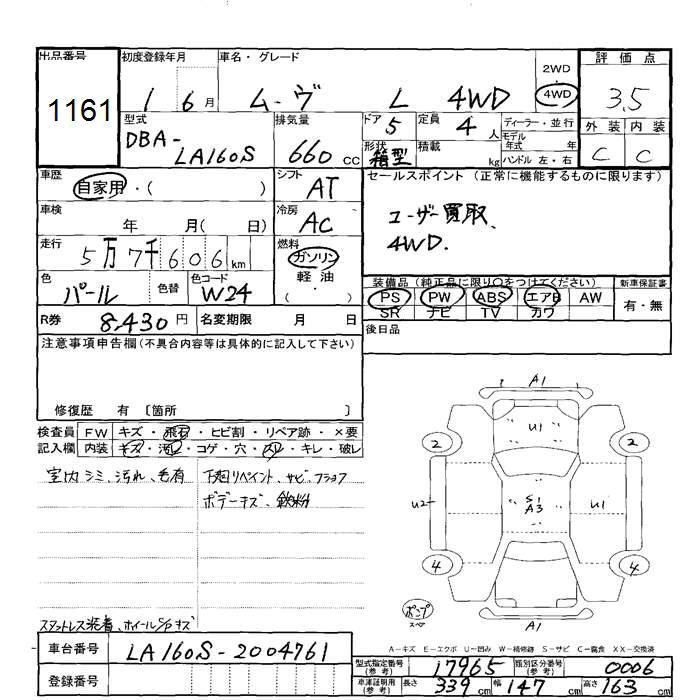 出品番号 初度登録年月 車名・グレード 2WD 4WD 評価点
1161 1 6月 ムーヴ L 4WD 3.5
型式 排気量 ドア 定員 ディーラー・並行 外装 内装
DBA-LA160S 660cc 5 4人 モデル年式 年 C C
形状 箱型 積載 kg ハンドル 左・右
車歴 自家用・( ) シフト AT セールスポイント (正常に機能するものに限ります)
車検 年 月( 日) 冷房 AC ユーザー買取、
4WD.
走行 5万7千606km 燃料 ガソリン 軽油 ・( )
色 パール 色替 色コード W24 装備品 (純正品に限り〇をつけてください) 新車保証書
PS PW ABS エアB AW 有・無
SR ナビ TV カワ
R券 8,430円 名変期限 月 日 後日品
注意事項申告欄(不具合内容等は具体的に記入して下さい)
修復歴 有 〔箇所 〕
検査員 FW キズ・飛石・ヒビ割・リペア跡・×要
記入欄 内装 キズ・汚れ・コゲ・穴・スレ・キレ・破レ
室内シミ、汚れ、毛有 下廻リペイント、サビ
ボデーキズ、鉄粉
スタットレス装着、ホイールS/Pキズ
A1
U1
2 2
U2 S1 A3 U1
4 4
ポンプ スペア
A1
A-キズ E-エクボ U-凹み W-補修跡 S-サビ C-腐食 XX-交換済
車台番号 LA160S-2004761
登録番号
型式指定番号(参考) 17965 類別区分番号(参考) 0006
車庫証明用(参考) 長さ 339cm 幅 147cm 高さ 163cm